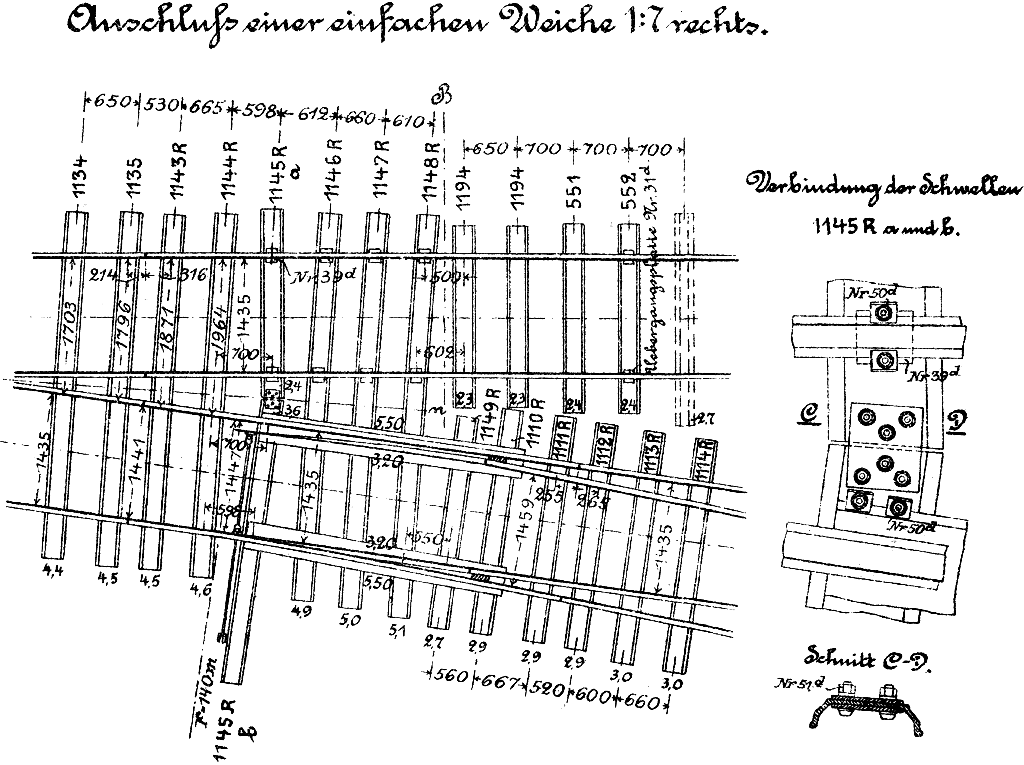 Anschluß einer einfachen Weiche 1:7 rechts.
B
650 530 665 598 612 660 610
650 700 700 700
1134 1135 1143R 1144R 1145R a 1146R 1147R 1148R 1194 1194 551 552
Uebergangsplatte Nr. 31d
Verbindung der Schwellen
1145 R a und b.
214 316 Nr 39d 500
1703 1796 1871 1964 1435
700 602
24 36 23 23 24 24 27
n
550
1149R 1110R 1111R 1112R 1113R 1114R
1435 1441 1447 700 1435 3,20
255 265
1459 1435
598 3,20 550
5,50
4,4 4,5 4,5 4,6 4,9 5,0 5,1 2,7 2,9 2,9 2,9 3,0 3,0
560 667 520 600 660
r=140m
1145R b
Nr 50d
Nr 39d
C D
Nr 50d
Schnitt C-D.
Nr 51d